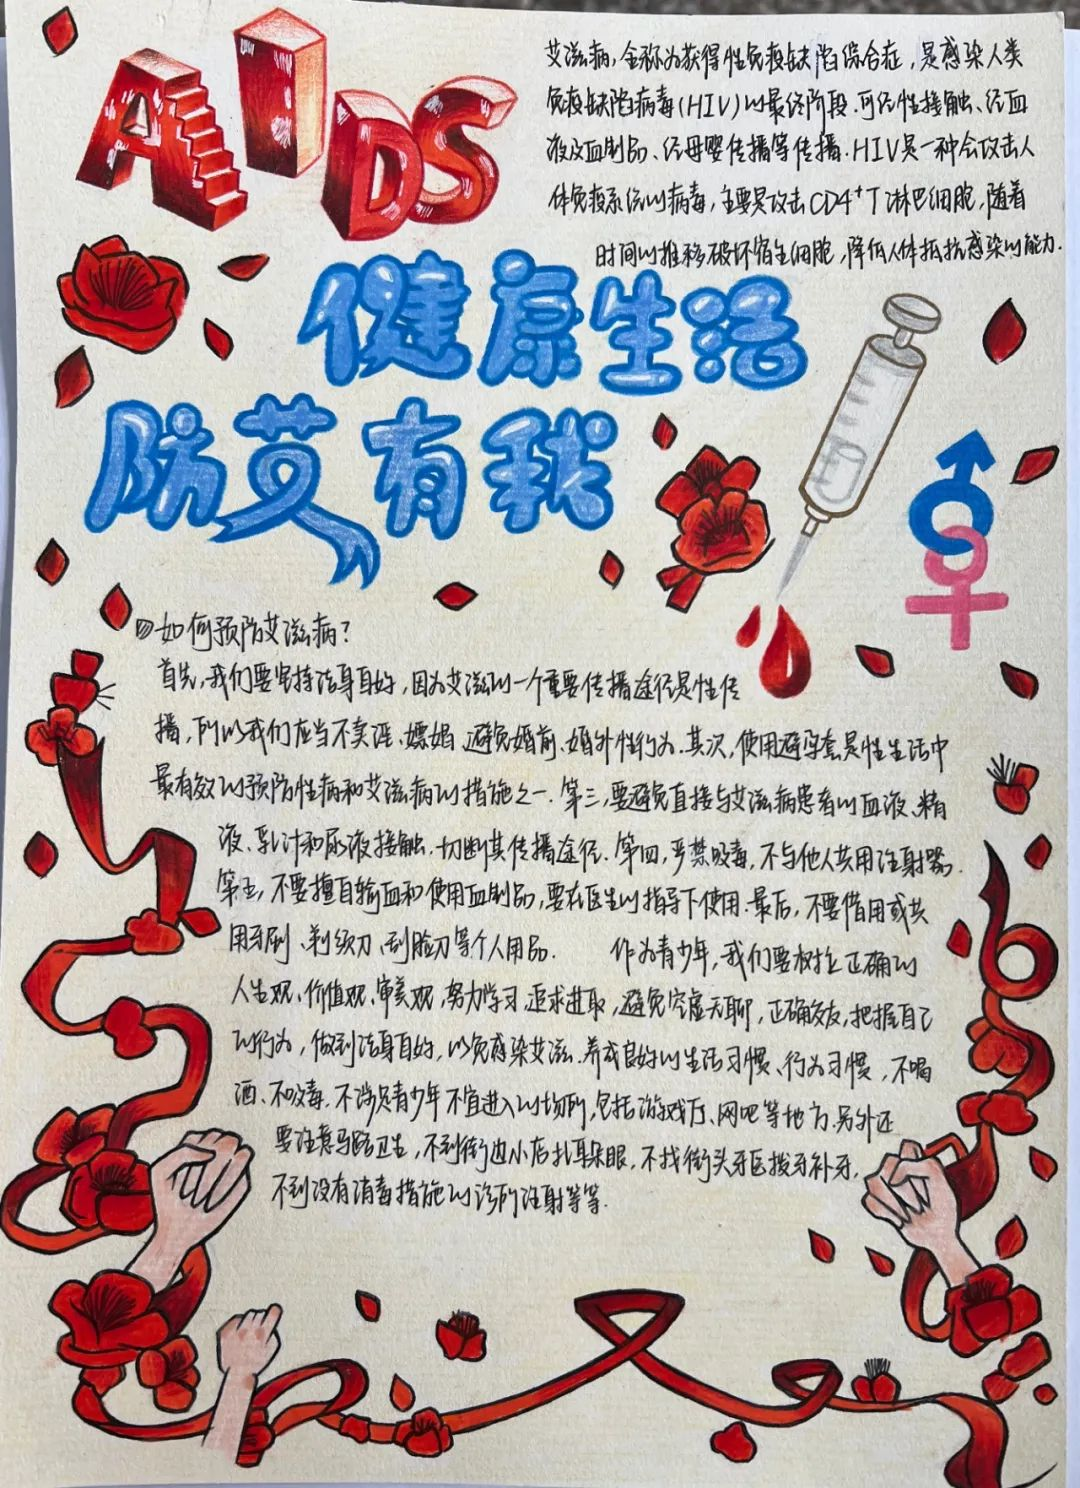 AIDS
艾滋病,全称为获得性免疫缺陷综合症,是感染人类
免疫缺陷病毒(HIV)的最终阶段.可经性接触、经血
液及血制品、经母婴传播等传播.HIV是一种会攻击人
体免疫系统的病毒,主要是攻击CD4⁺T淋巴细胞,随着
时间的推移破坏宿主细胞,降低人体抵抗感染的能力.
健康生活
防艾有我
如何预防艾滋病?
首先,我们要坚持洁身自好,因为艾滋的一个重要传播途径是性传
播,所以我们应当不卖淫、嫖娼、避免婚前、婚外性行为.其次,使用避孕套是性生活中
最有效的预防性病和艾滋病的措施之一.第三,要避免直接与艾滋病患者的血液、精
液、乳汁和尿液接触,切断其传播途径.第四,严禁吸毒,不与他人共用注射器.
第五,不要擅自输血和使用血制品,要在医生的指导下使用.最后,不要借用或共
用牙刷、剃须刀、刮脸刀等个人用品. 作为青少年,我们要树立正确的
人生观、价值观、审美观,努力学习,追求进取,避免空虚无聊,正确交友,把握自己
的行为,做到洁身自好,以免感染艾滋.养成良好的生活习惯、行为习惯,不喝
酒、不吸毒,不涉足青少年不宜进入的场所,包括游戏厅、网吧等地方.另外还
要注意马路卫生,不到街边小店扎耳朵眼,不找街头牙医拔牙补牙,
不到没有消毒措施的诊所注射等等.